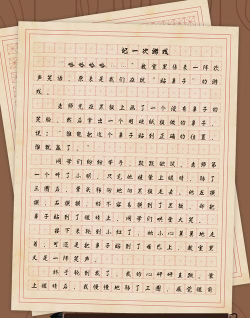 记一次游戏
“哈哈哈哈……”教室里传来一阵欢
声笑语，原来是我们在玩“贴鼻子”的游
戏。
老师先在黑板上画了一个没有鼻子的
笑脸，然后拿出一个用硬纸板做的鼻子，
说：“谁能把这个鼻子贴到正确的位置，
谁就赢了。”
同学们纷纷举手，跃跃欲试。老师第
一个叫了小明，只见他蒙上眼睛，转了
三圈后，
鼻子贴到了眼睛上，同学们哄堂大笑。
接下来轮到小红了，她小心翼翼地走
着，可还是把鼻子贴到了
又是一阵笑声。
终于轮到我了，我的心怦怦直跳，蒙
上眼睛后，我慢慢地转了三圈，感觉眼前